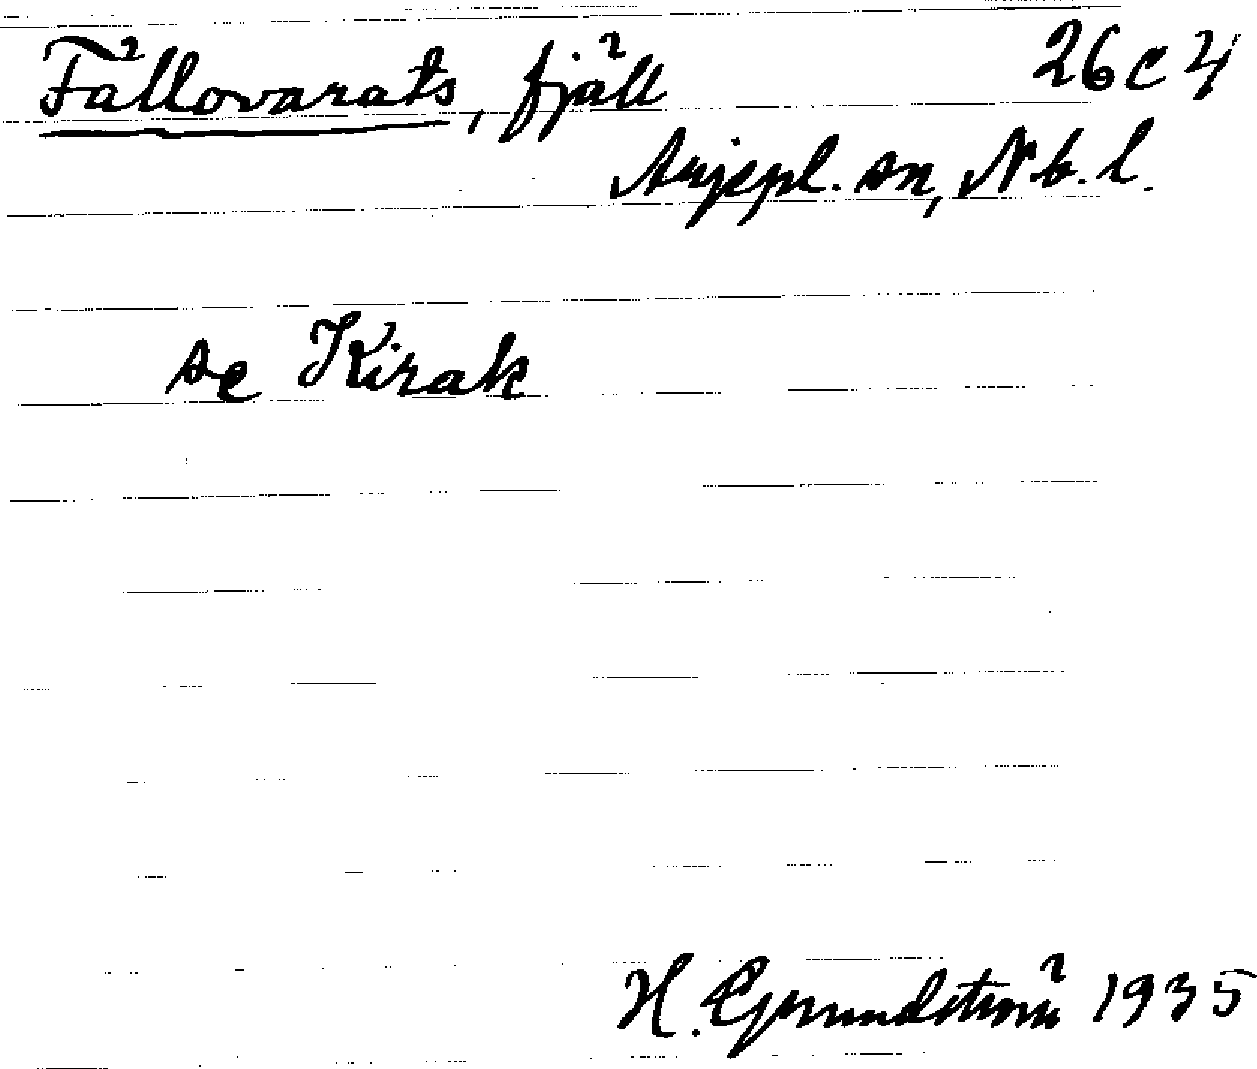 Fällovarats, fjäll 26 c 4
Arjepl. sn, Nb. l.
se Kirak
H. Grundström 1935